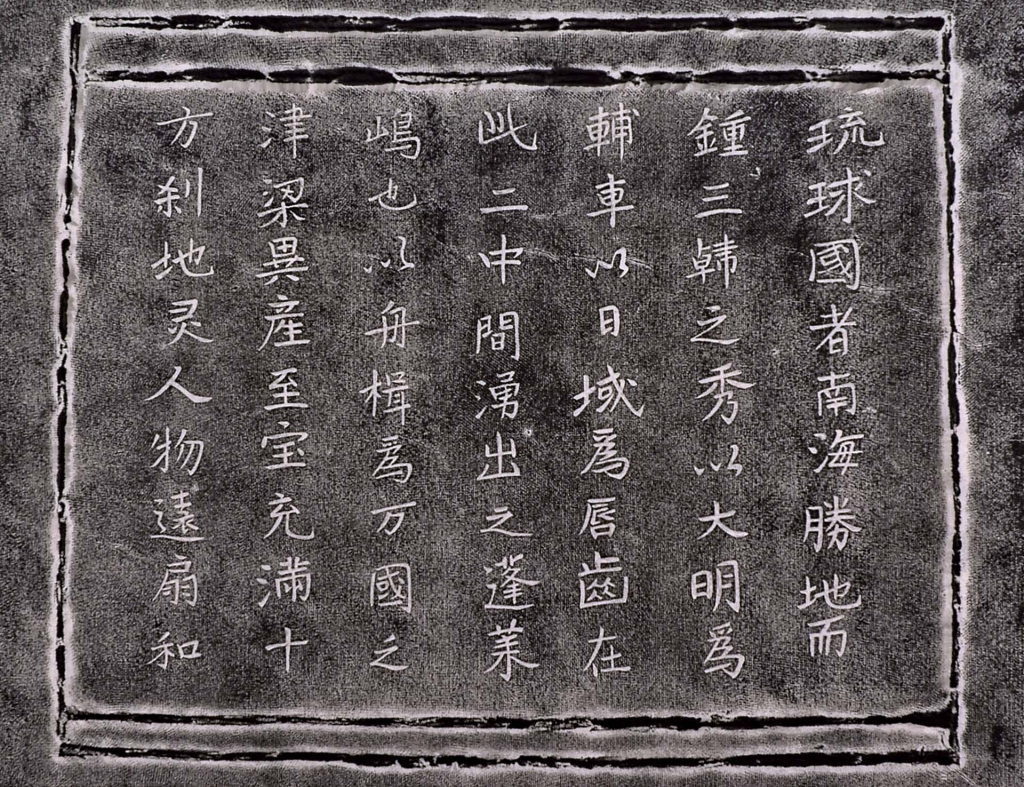 琉球國者南海勝地而
鍾三韓之秀以大明爲
輔車以日域爲唇齒在
此二中間湧出之蓬莱
嶋也以舟楫爲万國之
津梁異産至宝充満十
方刹地灵人物遠扇和